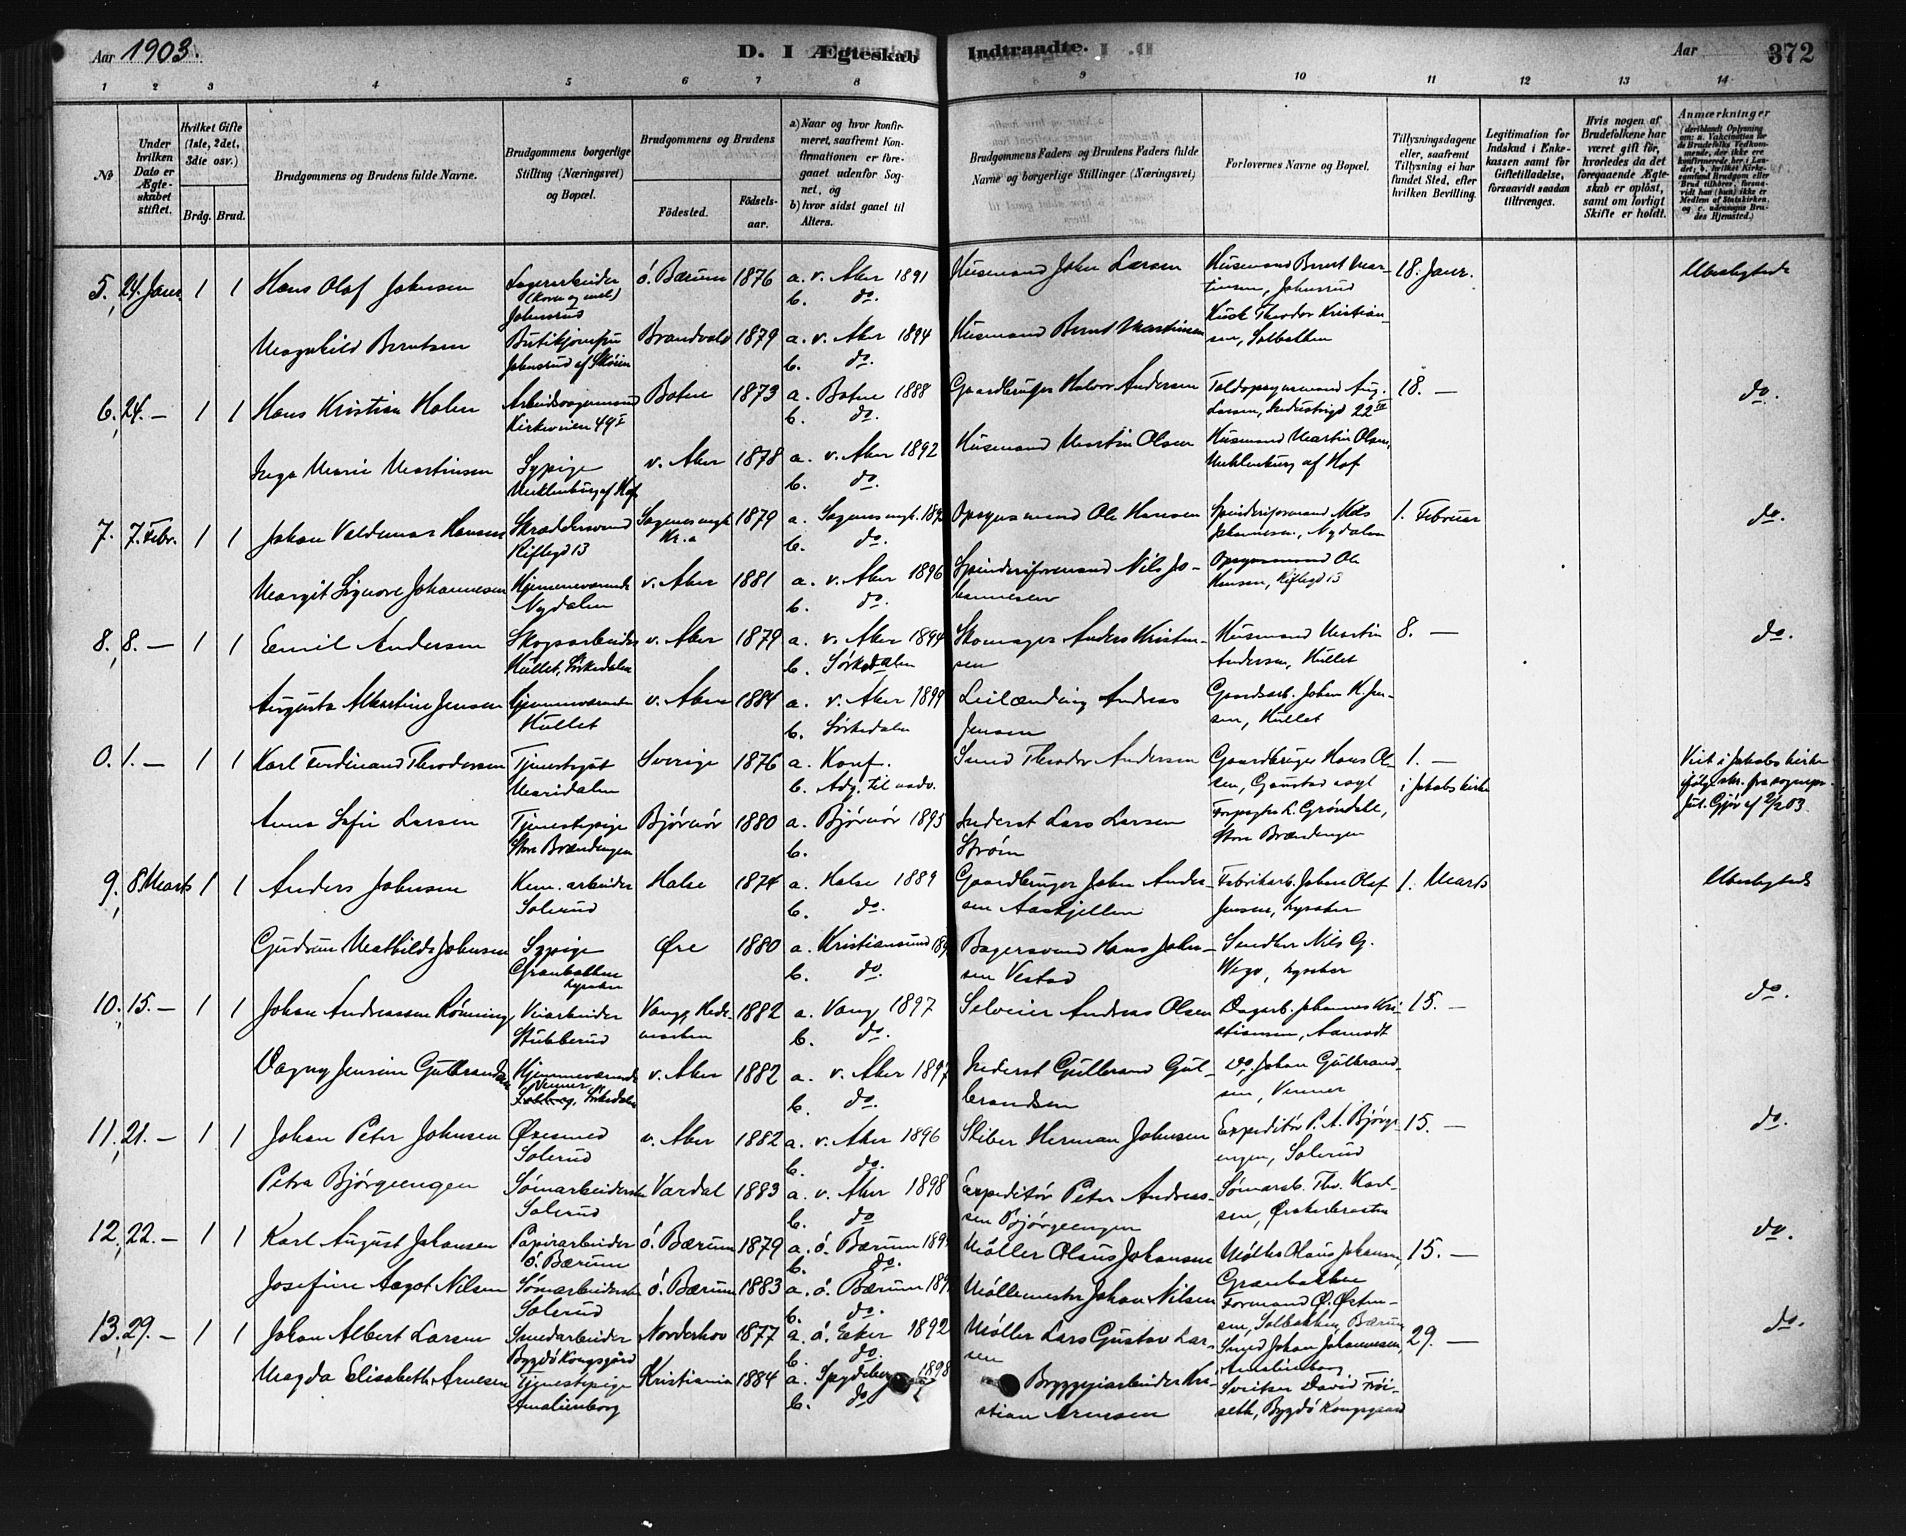 Aar 1903. D. I Ægteskab Indtraadte. Aar 372
1 2 3 4 5 6 7 8 9 10 11 12 13 14
No
Under hvilken Dato er Ægteskabet stiftet.
Hvilket Gifte (1ste, 2det, 3die osv.)
Brdg. Brud.
Brudgommens og Brudens fulde Navne.
Brudgommens borgerlige Stilling (Næringsvei) og Bopæl.
Brudgommens og Brudens
Födested. Födselsaar.
a) Naar og hvor konfirmeret, saafremt Konfirmationen er foregaaet udenfor Sognet, og
b) hvor sidst gaaet til Alters.
Brudgommens Faders og Brudens Faders fulde Navne og borgerlige Stillinger (Næringsvei)
Forlovernes Navne og Bopæl.
Tillysningsdagene eller, saafremt Tillysning ei har fundet Sted, efter hvilken Bevilling.
Legitimation for Indskud i Enkekassen samt for Giftetilladelse, forsaavidt saadan tiltrænges.
Hvis nogen af Brudefolkene har været gift för, hvorledes da det foregaaende Ægteskab er oplöst, samt om lovligt Skifte er holdt.
Anmærkninger
5. 24. Janr 1 1 Hans Olaf Johnsen Lagerarbeider (korn og mel) Johnsrud ö. Bærum 1876 a. v. Aker 1891 b. do. Husmand John Larsen Husmand Bernt Martinsen, Johnsrud 18. Janr. Ubeslegtede
Magnhild Berntsen Butikjomfru Johnsrud af Skøien Brandvold 1879 a. v. Aker 1894 b. do. Husmand Bernt Martinsen Kusk Theodor Kristiansen, Solbakken
6. 24. — 1 1 Hans Kristian Holm Arbeidsvognmand Kirkeveien 49 I Botne 1873 a. Botne 1888 b. do. Gaardbruger Halvor Andersen Toldopsynsmand Aug. Larsen, Industrigd 22 18. — do.
Inga Marie Martinsen Sypige Meklenburg af Hof v. Aker 1878 a. v. Aker 1892 b. do. Husmand Martin Olsen Husmand Martin Olsen, Meklenburg af Hof
7. 7. Febr. 1 1 Johan Valdemar Hansen Skræddersvend Riflegd 13 Sagenes mgh. Kr.a 1879 a. Sagenes mgh. b. do. Opsynsmand Ole Hansen Spinderiformand Nils Johannesen, Nydalen 1. Februar do.
Margit Signore Johannesen Hjemmeværende Nydalen v. Aker 1881 a. v. Aker 1896 b. do. Spinderiformand Nils Johannesen Opsynsmand Ole Hansen, Riflegd 13
8. 8. — 1 1 Emil Andersen Skogsarbeider Hullet, Sörkedalen v. Aker 1879 a. v. Aker 1894 b. Sörkedalen Skomager Anders Kristensen Husmand Martin Andersen, Hullet 8. — do.
Augusta Albertine Jensen Hjemmeværende Hullet v. Aker 1884 a. v. Aker 1899 b. Sörkedalen Leilænding Andreas Jensen Gaardsarb. Johan K. Jensen, Hullet
0. 1. — 1 1 Karl Ferdinand Theodorsen Tjenestegut Maridalen Sverige 1876 a. Konf. b. Adg. til nadv. Smed Theodor Andersen Gaardbruger Hans Olsen, Gaustad asyl 1. — i Jakobs kirke Viet i Jakobs kirke
Anna Sofie Larsen Tjenestepige Store Brændengen Bjørnör 1880 a. Bjørnör 1895 b. Inderst Lars Larsen Strøm Forpagter L. Grøndahl, Store Brændengen
9. 8. Marts 1 1 Anders Johnsen Kem. arbeider Solerud Halse 1874 a. Halse 1889 b. do. Gaardbruger John Andersen Aaskjellen Fabrikarb. Johan Olaf Jensen, Lysaker 1. Marts Ubeslegtede
Gudrun Mathilde Johnsen Sypige Granbakken Lysaker Øre 1880 a. Kristiansund b. do. Bagersvend Hans Johnsen Vestad Snedker Nils G. Wego, Lysaker
10. 15. — 1 1 Johan Andreassen Rönning Veiarbeider Stubberud Vang, Hedemarken 1882 a. Vang 1897 b. do. Selveier Andreas Olsen Dagarb. Johannes Kristiansen, Aamodt 15. — do.
Dagny Jensine Gulbrandsen Hjemmeværende Venner, Sörkedalen v. Aker 1882 a. v. Aker 1897 b. do. Inderst Gulbrand Gulbrandsen Do. Johan Gulbrandsen, Venner
11. 21. — 1 1 Johan Peter Johnsen Øxesmed Solerud v. Aker 1882 a. v. Aker 1896 b. do. Skiber Herman Johnsen Expeditör P. A. Bjørgeengen, Solerud 15. — do.
Petra Bjørgeengen Sömarbeiderske Solerud Vardal 1883 a. v. Aker 1898 b. do Expeditör Peter Andreassen Bjørgeengen Sömarb. Thv. Karlsen,
12. 22. — 1 1 Karl August Johansen Papirarbeider ö. Bærum ö. Bærum 1879 a. ö. Bærum b. do. Møller Olaus Johansen Møller Olaus Johansen, Granbakken 15. — do.
Josefine Aagot Nilsen Sömarbeiderske Solerud ö. Bærum 1883 a. ö. Bærum b. do. Møllemester Johan Nilsen Formand O. Østensen, Solbakken, Bærum
13. 29. — 1 1 Johan Albert Larsen Smedarbeider Bygdö Kongsgård Norderhov 1877 a. ö. Eker 1892 b. do. Møller Lars Gustav Larsen Smed Johan Johannesen, Amalienborg 29. — do.
Magda Elisabeth Arnesen Tjenestepige Amalienborg Kristiania 1884 a. Spydeberg 1898 b. do Bryggeriarbeider Kristian Arnesen Sveitser David Fröiseth, Bygdö Kongsgaard